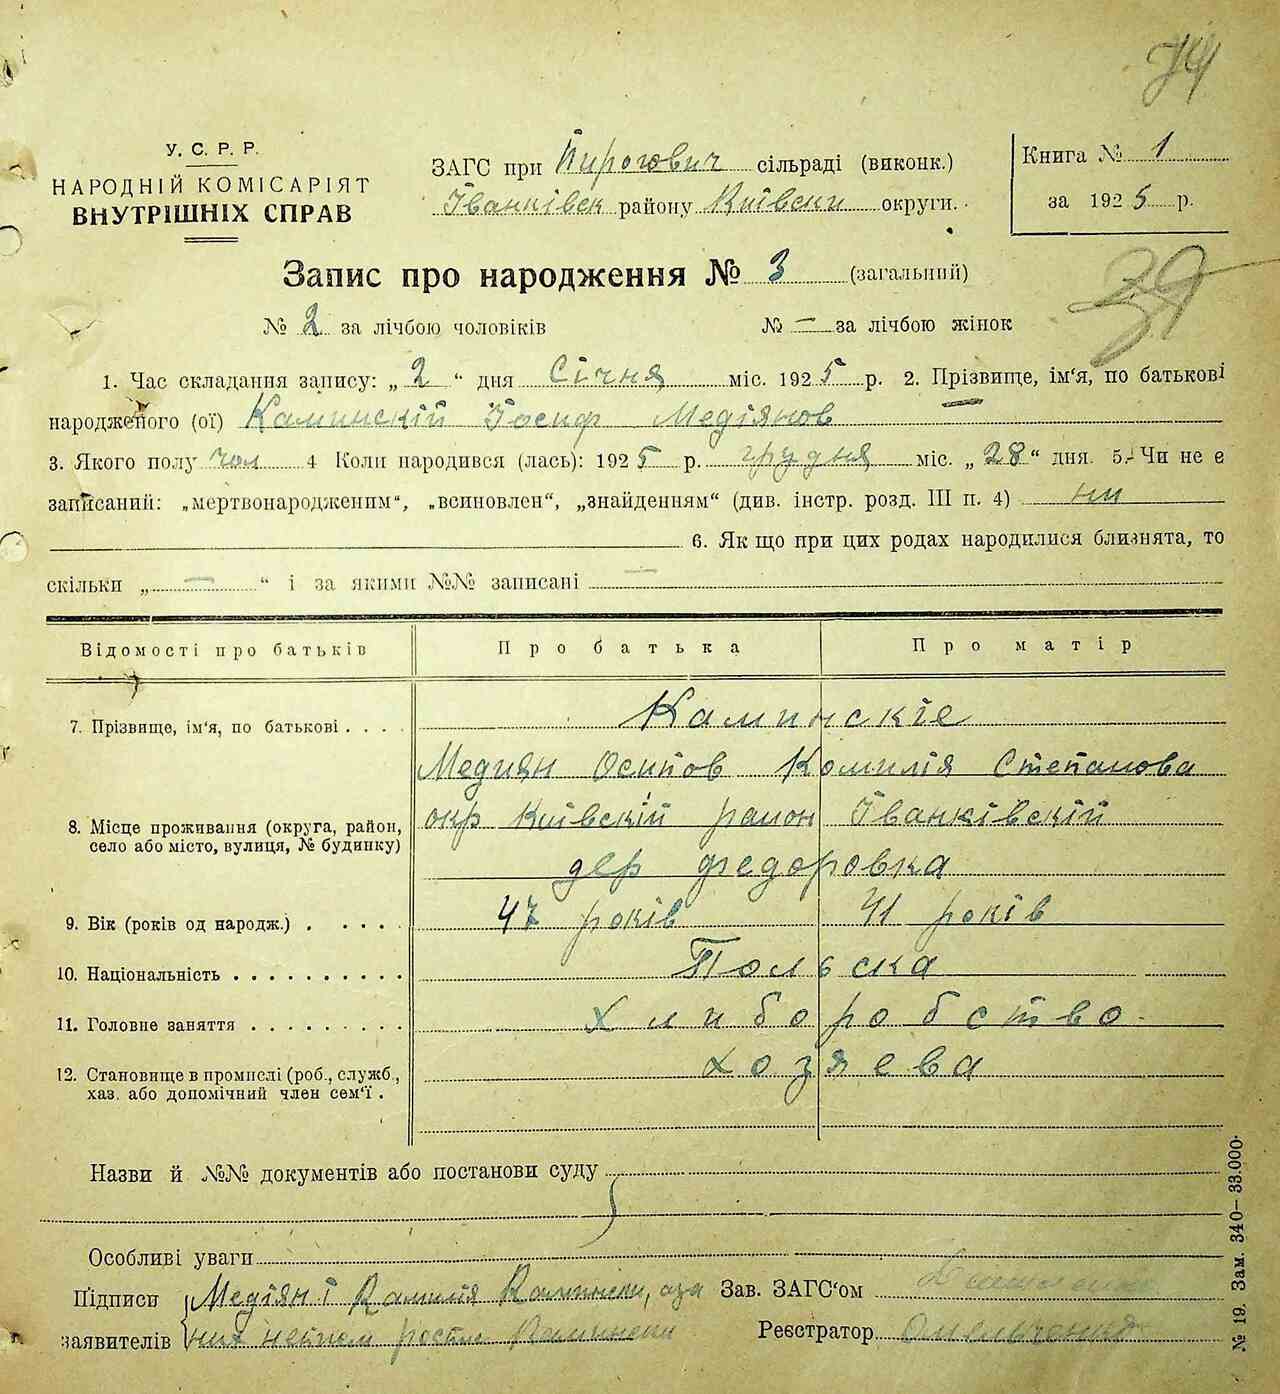 74
У. С. Р. Р.
НАРОДНІЙ КОМІСАРІЯТ
ВНУТРІШНІХ СПРАВ
ЗАГС при Пирогович сільраді (виконк.)
Іванківск району Київски округи.
Книга № 1
за 1925 р.
39
Запис про народження № 3 (загальний)
№ 2 за лічбою чоловіків № — за лічбою жінок
1. Час складання запису: „ 2 “ дня Січня міс. 1925 р. 2. Прізвище, ім‘я, по батькові
народженого (ої) Каминскій Іосиф Медіянов
3. Якого полу чол 4 Коли народився (лась): 1925 р. грудня міс. „28“ дня. 5. Чи не є
записаний: „мертвонародженим“, „всиновлен“, „знайденням“ (див. інстр. розд. III п. 4) ни
6. Як що при цих родах народилися близнята, то
скільки „ — “ і за якими №№ записані —
Відомості про батьків Про батька Про матір
7. Прізвище, ім‘я, по батькові . . . . Каминскіе
Медиян Осипов Комилія Степанова
8. Місце проживання (округа, район, окр Київскій район Іванківскій
село або місто, вулиця, № будинку) дер Федоровка
9. Вік (років од народж.) . . . . . 47 років 41 років
10. Національність . . . . . . . . . . Польска
11. Головне заняття . . . . . . . . . Хлиборобство
12. Становище в промислі (роб., служб., хозяева
хаз. або допомічний член сем‘ї .
Назви й №№ документів або постанови суду
Особливі уваги
Підписи Медіян і Камилія Камински, аза Зав. ЗАГС‘ом
заявителів них Камински Реєстратор Омельченко
№ 19. Зам. 340— 33.000.